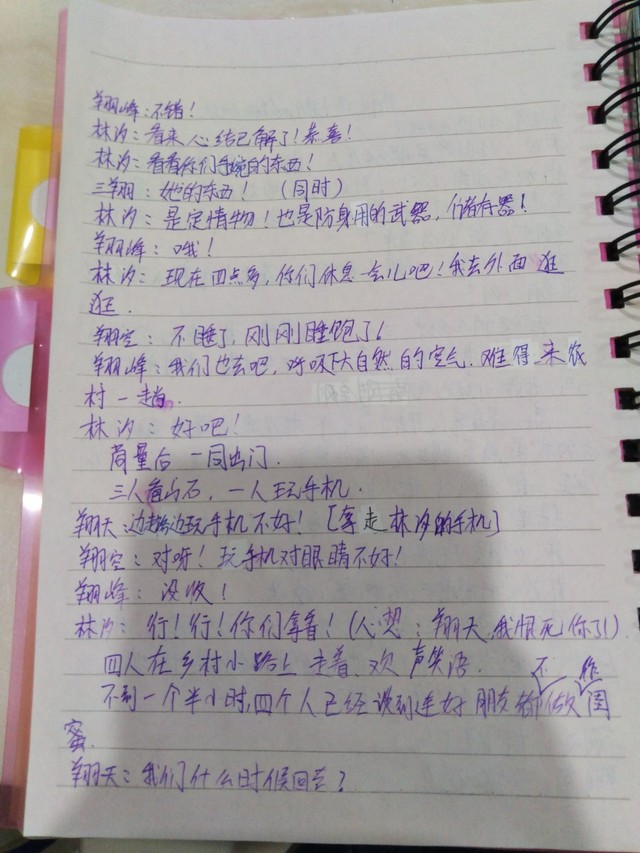 翔峰：不错！
林汐：看来心结已解了！恭喜！
林汐：看看你们手镜的东西！
三翔：她的东西！（同时）
林汐：是定情物！也是防身用的武器，储存器！
翔峰：哦！
林汐：现在四点多，你们休息一会儿吧！我去外面逛
逛．
翔空：不睡了，刚刚睡饱了！
翔峰：我们也去吧，呼吸下大自然的空气．难得来农
村一趟．
林汐：好吧！
商量后一同出门．
三人看山石，一人玩手机．
翔天：边走边玩手机不好！[拿走林汐的手机]
翔空：对呀！玩手机对眼睛不好！
翔峰：没收！
林汐：行！行！你们拿着！（心想：翔天，我恨死你了！）
四人在乡村小路上走着，欢声笑语．
不到一个半小时，四个人已经谈到连好朋友都不做作闺
蜜．
翔天：我们什么时候回去？